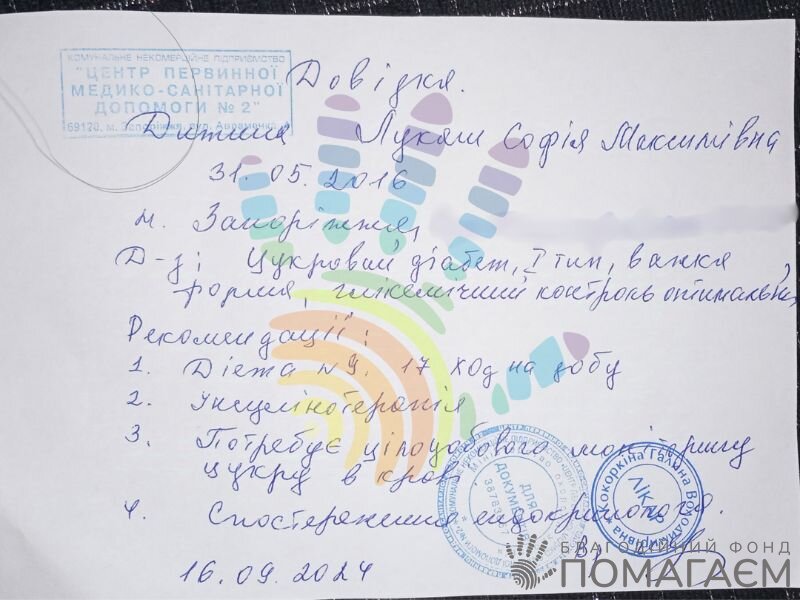 КОМУНАЛЬНЕ НЕКОМЕРЦІЙНЕ ПІДПРИЄМСТВО
"ЦЕНТР ПЕРВИННОЇ
МЕДИКО-САНІТАРНОЇ
ДОПОМОГИ № 2"
69120, м. Запоріжжя, вул. Авраменка, 4
Довідка.
Дитина Лукаш Софія Максимівна
31.05.2016
м. Запоріжжя,
Д-з: Цукровий діабет, I тип, важка
форма, глікемічний контроль оптимальний,
Рекомендації:
1. Дієта N9. 17 ХОД на добу
2. Інсулінотерапія
3. Потребує цілодобового моніторингу
цукру в крові
4. Спостереження ендокринолога.
ДЛЯ
ДОКУМЕНТІВ
ЛІКАР
Галина Володимирівна
16.09.2024
БЛАГОДІЙНИЙ ФОНД
ПОМАГАЄМ